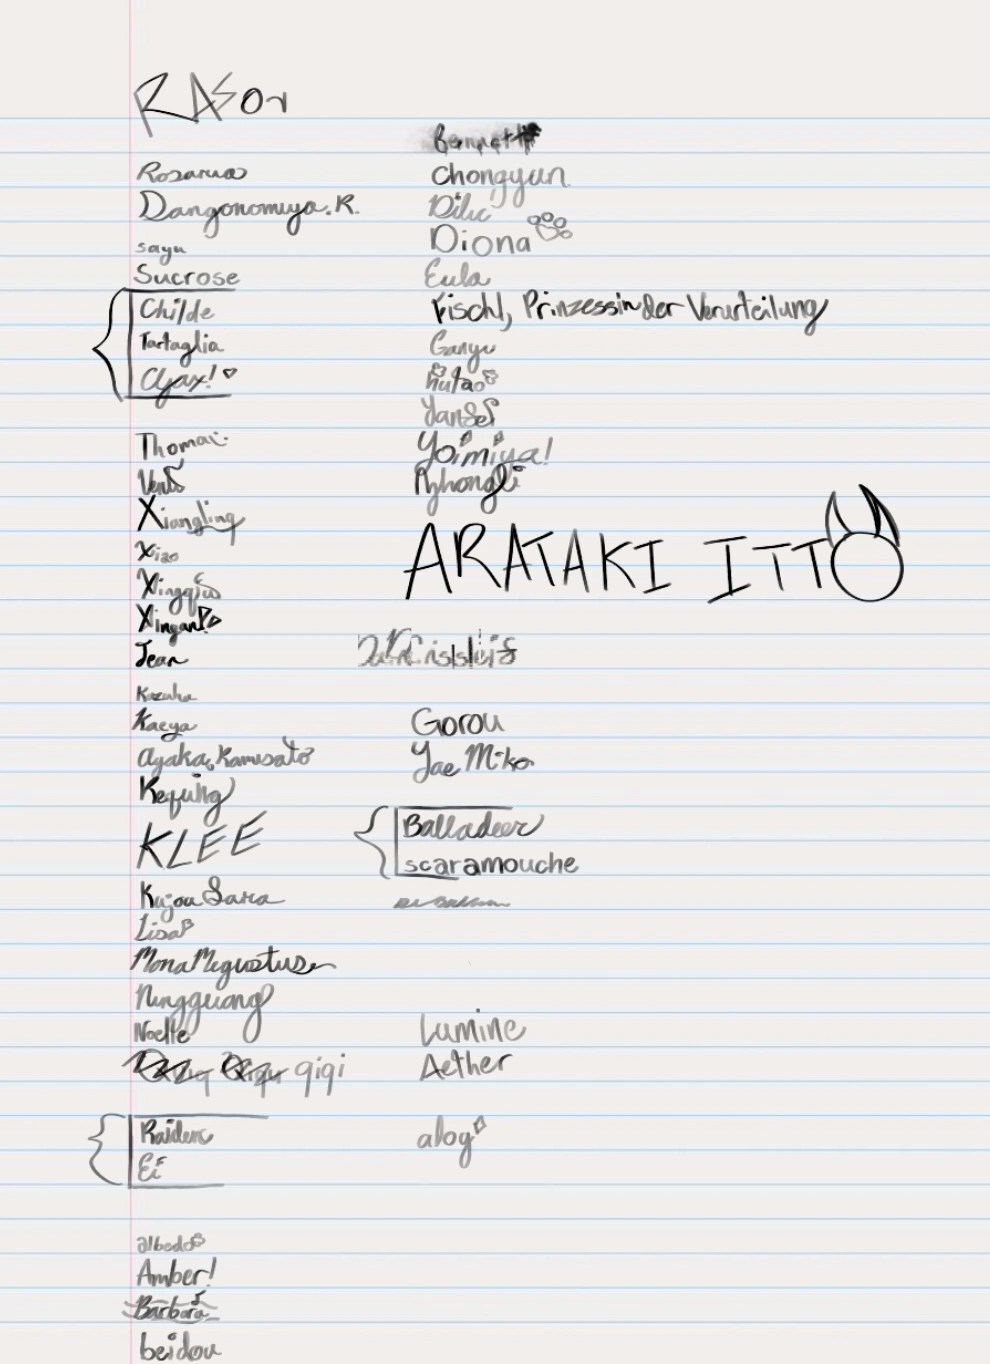 RASOr
Rosaria
Dangonomiya.R.
sayu
Sucrose
Childe
Tartaglia
Ajax!
Thoma
Venti
Xiangling
Xiao
Xingqiu
Xinyan
Jean
Kazuha
Kaeya
ayaka, Kamisato
Keqing
KLEE
Kujou Sara
Lisa
Mona Megistus
Ningguang
Noelle
qiqi
Raiden
Ei
albedo
Amber!
Barbara
beidou
Bennett
Chongyun
Diluc
Diona
Eula
Fischl, Prinzessin der Verurteilung
Ganyu
hutao
Yanfei
Yoimiya!
Zhongli
ARATAKI ITTO
Gorou
Yae Miko
Balladeer
scaramouche
Lumine
Aether
aloy